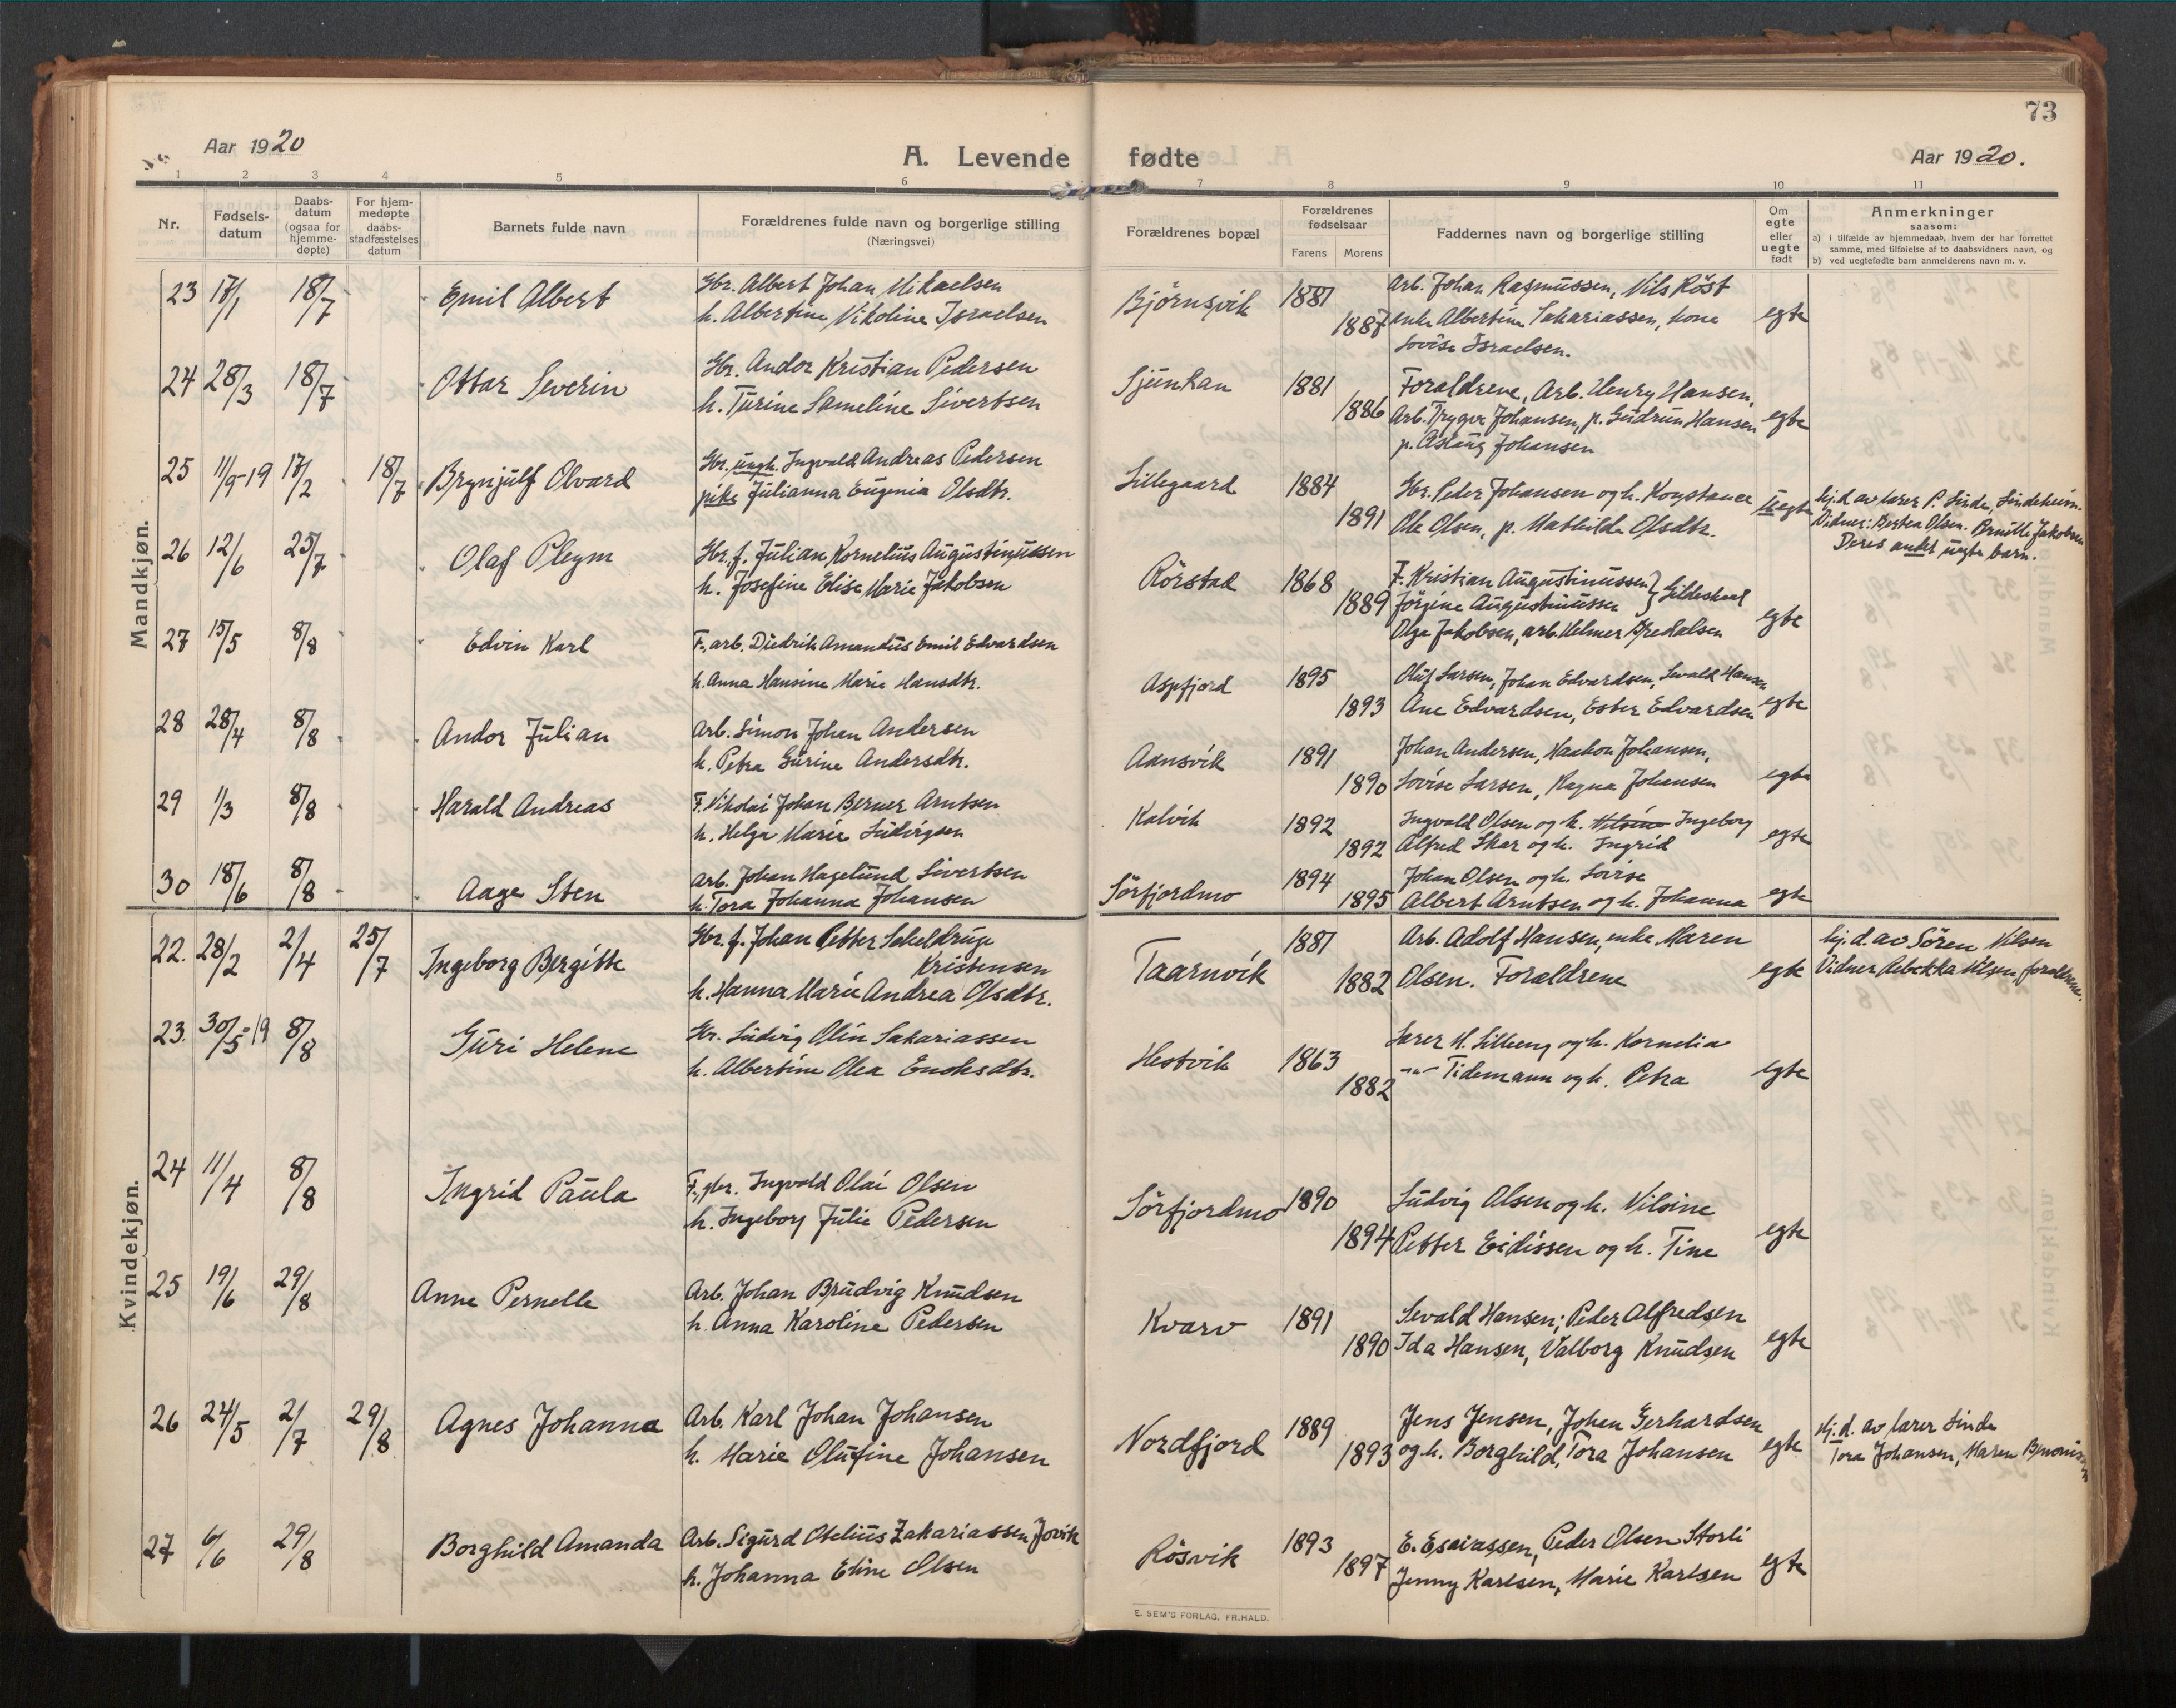 73
Aar 1920
A. Levende fødte
Aar 1920.
1 2 3 4 5 6 7 8 9 10 11
Nr.
Fødsels-
datum
Daabs-
datum
(ogsaa for
hjemme-
døpte)
For hjem-
medøpte
daabs-
stadfæstelses
datum
Barnets fulde navn
Forældrenes fulde navn og borgerlige stilling
(Næringsvei)
Forældrenes bopæl
Forældrenes
fødselsaar
Farens Morens
Faddernes navn og borgerlige stilling
Om
egte
eller
uegte
født
Anmerkninger
saasom:
a) i tilfælde av hjemmedaab, hvem der har forrettet
samme, med tilføielse af to daabsvidners navn, og
b) ved uegtefødte barn anmelderens navn m. v.
Mandkjøn.
23 17/1 18/7 Emil Albert
Gbr. Albert Johan Mikaelsen
h. Albertine Nikoline Israelsen
Björnsvik 1881
1887
Arb. Johan Rasmussen, Nils Röst
enke Albertine Sakariassen, kone
Lovise Israelsen.
egte
24 28/3 18/7 Ottar Severin
Gbr. Andor Kristian Pedersen
h. Turine Sameline Sivertsen
Sjunhan 1881
1886
Foraldrene, Arb. Henry Hansen,
Arb. Trygve Johansen, p. Gudrun Hansen
p. Aslaug Johansen
egte
25 11/9-19 17/2 18/7 Brynjulf Olvard
Gbr. ungk. Ingvald Andreas Pedersen
pike Julianna Eugenia Olsdtr.
Lillegaard 1884
1891
Gbr. Peder Johansen og h. Konstance
Ole Olsen, p. Mathilde Olsdtr.
uegte
hj.d. av lærer P. Linde, Lindeheim.
Vidner: Bertea Olsen. Brnitte Jakobsen
Deres andet uegte barn.
26 12/6 25/7 Olaf Pleym
Gbr. f. Julian Kornelius Augustinussen
h. Josefine Elise Marie Jakobsen
Rörstad 1868
1889
F. Kristian Augustinussen } Gildeskaal
Jörgine Augustinussen
Olga Jakobsen, arb. Helmer Bredalsen
egte
27 15/5 8/8 Edvin Karl
F., arb. Diedrik Amandus Emil Edvardsen
h. Anna Hansine Marie Hansdtr.
Aspfjord 1895
1893
Oluf Larsen, Johan Edvardsen, Sevald Hansen
Ane Edvardsen, Ester Edvardsen
egte
28 28/4 8/8 Andor Julian
Arb. Simon Johan Andersen
h. Petra Gurine Andersdtr.
Aansvik 1891
1890
Johan Andersen, Haakon Johansen,
Lovise Larsen, Ragna Johansen
egte
29 1/3 8/8 Harald Andreas
F. Nikolai Johan Berner Arntsen
h. Helga Marie Ludvigsen
Kalvik 1892
1892
Ingvald Olsen og h. Nilsine Ingeborg
Alfred Skar og h. Ingrid
egte
30 18/6 8/8 Aage Sten
Arb. Johan Hagelund Sivertsen
h. Tora Johanna Johansen
Sörfjordmo 1894
1895
Johan Olsen og h. Lovise
Albert Arntsen og h. Johanna
egte
Kvindekjøn.
22. 28/2 2/4 25/7 Ingeborg Bergitte
Gbr. f. Johan Petter Scheldrup
Kristensen
h. Hanna Marie Andrea Olsdtr.
Taarnvik 1881
1882
Arb. Adolf Hansen, enke Maren
Olsen. Foraldrene
egte
hj. d. av Sören Nilsen
Vidner Rebekka Nilsen, foraldrene.
23. 30/5-19 8/8 Guri Helene
Gbr. Ludvig Olin Sakariassen
h. Albertine Olea Enoksdtr.
Hestvik 1863
1882
Lærer M. Lilleeng og h. Kornelia
-"- Tidemann og h. Petra
egte
24 11/4 8/8 Ingrid Paula
F., gbr. Ingvald Olai Olsen
h. Ingeborg Julie Pedersen
Sörfjordmo 1890
1894
Ludvig Olsen og h. Nilsine
Petter Eidissen og h. Tine
egte
25 19/6 29/8 Anne Pernelle
Arb. Johan Brudvig Knudsen
h. Anna Karoline Pedersen
Kvarv 1891
1890
Sevald Hansen; Peder Alfredsen
Ida Hansen, Valborg Knudsen
egte
26 24/5 2/7 29/8 Agnes Johanna
Arb. Karl Johan Johansen
h. Marie Olufine Johansen
Nordfjord 1889
1893
Jens Jensen, Johan Gerhardsen
og h. Borghild, Tora Johansen
egte
Hj. d. av lærer Linde
Tora Johansen, Maren
27 6/6 29/8 Borghild Amanda
Arb. Sigurd Otelius Zakariassen Jovik
h. Johanna Eline Olsen
Rösvik 1893
1897
E. Esaiassen, Peder Olsen Storli
Jenny Karlsen, Marie Karlsen
egte
E. SEM'S FORLAG, FR.HALD.